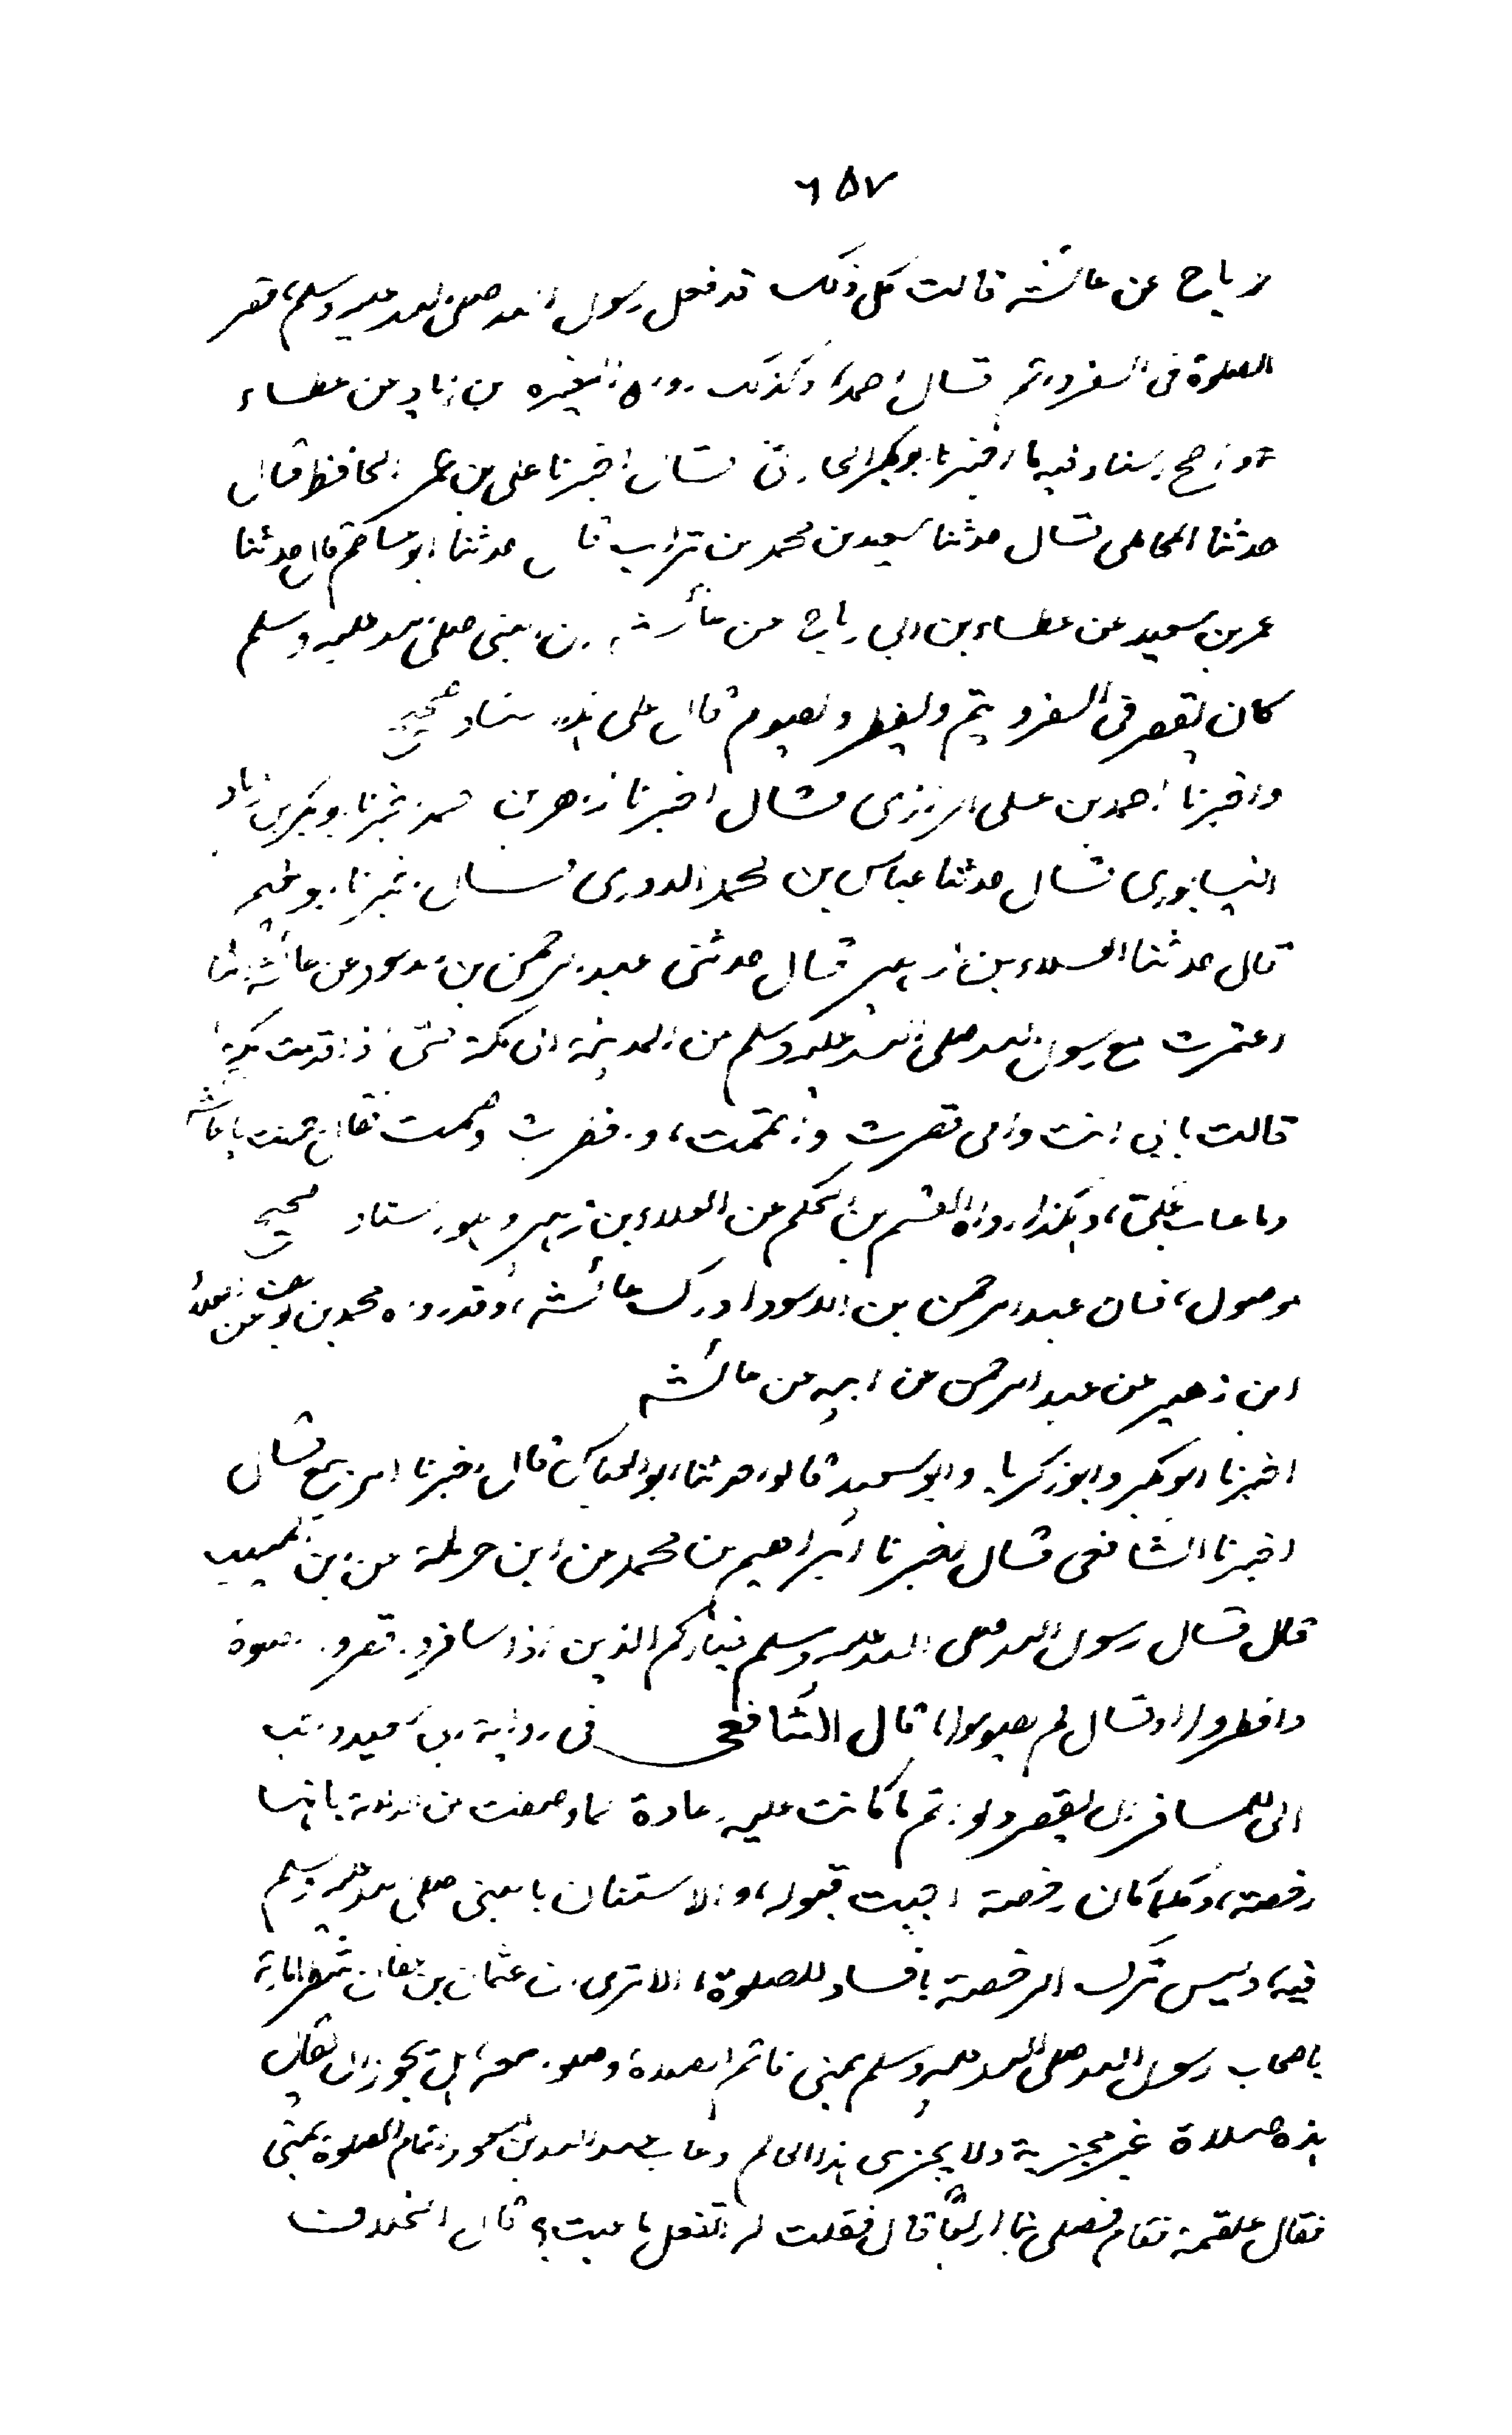 ٦٥٧
رباح عن عائشة قالت كل ذلك قد فعل رسول الله صلى الله عليه وسلم، قصر
الصلوة فى السفر واتم قال احمد، وكذلك رواه المغيره بن زياد عن عطاء
واصح اسناد فيه ما اخبرنا ابوبكر الحارثى قال اخبرنا على بن عمر الحافظ قال
حدثنا المحاملى قال حدثنا سعيد بن محمد بن ثواب قال حدثنا ابو عاصم قال حدثنا
عمر بن سعيد عن عطاء بن ابى رباح عن عائشة ان النبى صلى الله عليه وسلم
كان يقصر فى السفر ويتم ويفطر ويصوم قال على هذا اسناد صحيح
واخبرنا احمد بن على الرازى قال اخبرنا زاهر بن احمد اخبرنا ابوبكر بن زياد
النيسابورى قال حدثنا عباس بن محمد الدورى قال اخبرنا ابو نعيم
قال حدثنا العلاء بن زهير قال حدثنى عبد الرحمن بن الاسود عن عائشة انها
اعتمرت مع رسول الله صلى الله عليه وسلم من المدينة الى مكة حتى اذا قدمت مكة
قالت بابى انت وامى قصرت واتممت، وافطرت وصمت فقال احسنت يا عائشة
وما عاب على، وهكذا رواه القسم بن الحكم عن العلاء بن زهير وهو اسناد صحيح
موصول، فان عبد الرحمن بن الاسود ادرك عائشة، وقد رواه محمد بن يوسف عن العلاء
ابن زهير عن عبد الرحمن عن ابيه عن عائشة
اخبرنا ابوبكر وابو زكريا وابو سعيد قالوا حدثنا ابو العباس قال اخبرنا الربيع قال
اخبرنا الشافعى قال اخبرنا ابراهيم بن محمد عن ابن حرملة عن ابن المسيب
قال قال رسول الله صلى الله عليه وسلم خياركم الذين اذا سافروا قصروا الصلوة
وافطروا او قال لم يصوموا، قال الشافعى فى رواية ابى سعيد واحب
الى للمسافر ان يقصر ولو اتم ما كانت عليه اعادة لما وصفت من الدلالة بانها
رخصة، وكلما كان رخصة احببت قبوله، والاستنان بالنبى صلى الله عليه وسلم
فيه، وليس ترك الرخصة بافساد للصلوة، الا ترى ان عثمان بن عفان
باصحاب رسول الله صلى الله عليه وسلم بمنى فاتم الصلاة وصلوا معه، هل يجوز ان يقال
هذه صلاة غير مجزية ولا يجزى هذا وعاب عبد الله بن مسعود اتمام الصلوة بمنى
فقال علقمة فقام فصلى بنا اربعًا قال فقلت له اتفعل ما عبت؟ قال الخلاف